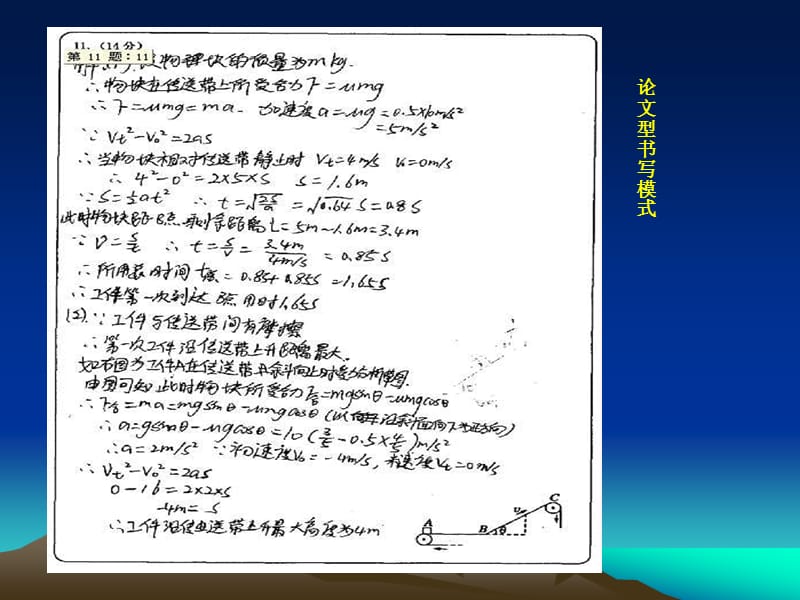 11. (14分)
第 11 题：11
设物理块的质量为m kg.
∴物块在传送带上所受合力F=μmg
∴F=μmg=ma. 加速度a=μg=0.5×10m/s²
=5m/s²
∵ Vt²-V₀²=2as
∴当物块相对传送带静止时 Vt=4m/s V₀=0m/s
∴ 4²-0²=2×5×S S=1.6m
∵S=½at² ∴ t=√(2S/a) =√0.64 S=0.8S
此时物块距B点 距离L=5m-1.6m=3.4m
∵ V=S/t ∴ t=S/V=3.4m/4m/s =0.85S
∴所用 时间t =0.8S+0.85S=1.65S
∴工件第一次到达B点用时1.65S
(2)∵工件与传送带间有摩擦
∴第一次工件沿传送带上升距离最大.
如右图为工件A在传送带 斜向上时受力分析草图.
由图可知此时物块所受合力F合=mgsinθ-μmgcosθ
∴F合=ma=mgsinθ-μmgcosθ(以 沿斜面向下为正方向)
∴a=gsinθ-μgcosθ=10(3/5-0.5×4/5)m/s²
∴a=2m/s² ∵初速度V₀=-4m/s, 末速度Vt=0m/s
∴ Vt²-V₀²=2as
0-16=2×2×S
-4m=S
∴工件沿传送带上升最大高度为4m
A B θ υ C
论文型书写模式